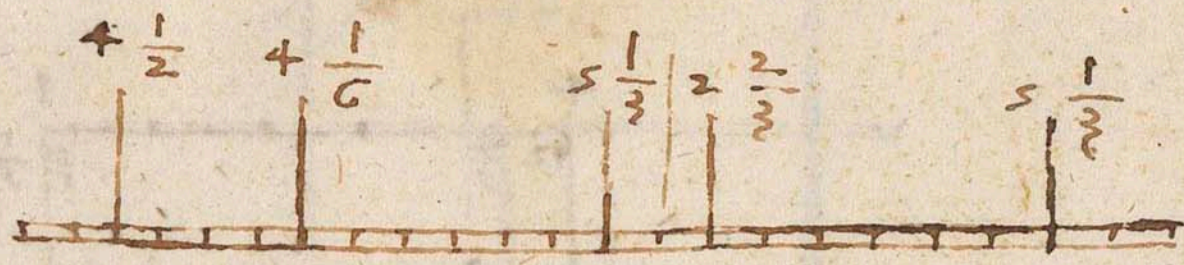 4 1/2 4 1/6 5 1/3 | 2 2/3 5 1/3